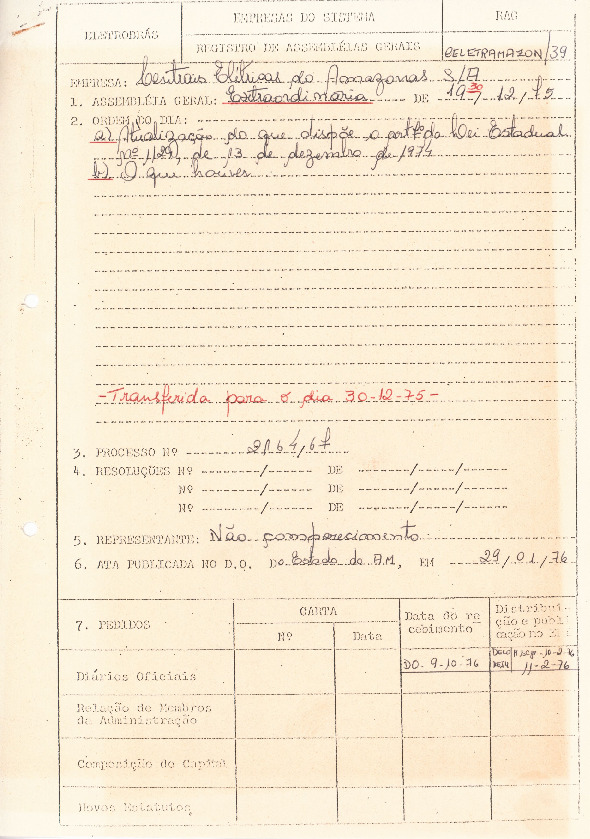 ELETROBRÁS
EMPRESAS DO SISTEMA
RAG
REGISTRO DE ASSEMBLÉIAS GERAIS
CELETRAMAZON/39
EMPRESA: Centrais Elétricas do Amazonas S/A
1. ASSEMBLÉIA GERAL: Extraordinária DE 19/12/75
30
2. ORDEM DO DIA:
a) Atualização do que dispõe o art. 1º da Lei Estadual
nº de 13 de dezembro de 1974
b) O que houver
-Transferida para o dia 30-12-75-
3. PROCESSO Nº 2164/67
4. RESOLUÇÕES Nº / DE / /
Nº / DE / /
Nº / DE / /
5. REPRESENTANTE: Não comparecimento
6. ATA PUBLICADA NO D.O. Do Estado do AM, EM 29/01/76
7. PEDIDOS
CARTA
Nº
Data
Data do re
cebimento
Distribui-
ção e publi
cação no
Diários Oficiais
DO. 9-10-76
11-2-76
Relação de Membros
da Administração
Composição do Capital
Novos Estatutos